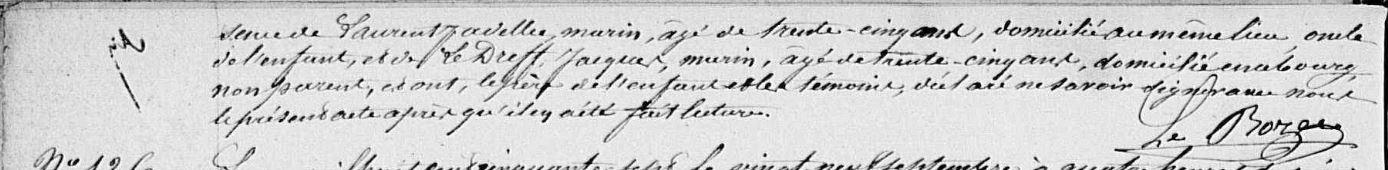 sence de Laurent Jadelle, marin, âgé de trente-cinq ans, domicilié au même lieu oncle
de l'enfant, et de Le Dreff, Jacques, marin, âgé de trente-cinq ans, domicilié en ce bourg,
non parent, et ont, le père de l'enfant et les témoins, déclaré ne savoir signer avec nous
le présent acte après qu'il en a été fait lecture.
Le Borgne
N° 126
mil huit cent cinquante-sept le vingt neuf septembre à quatre heures